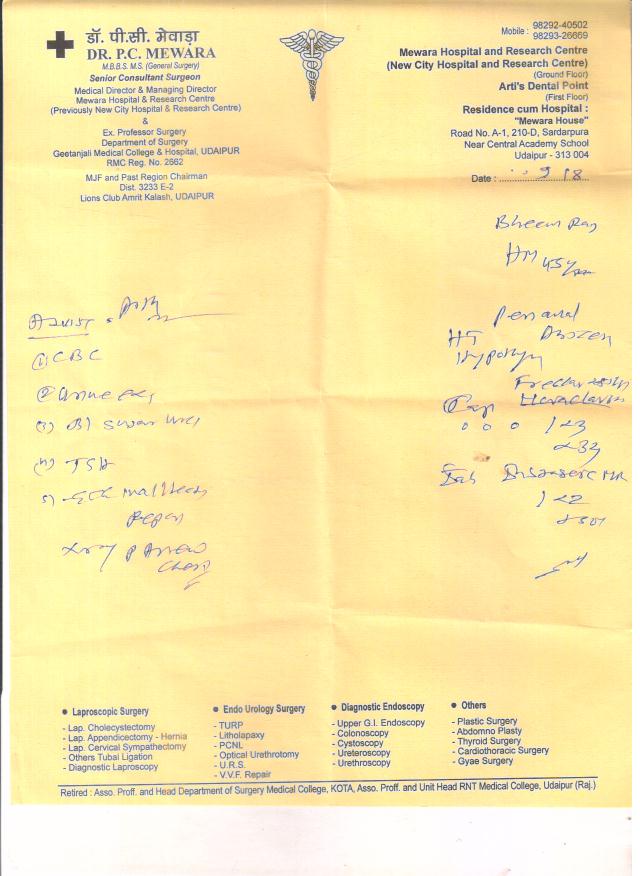 डॉ. पी.सी. मेवाड़ा
DR. P.C. MEWARA
M.B.B.S. M.S. (General Surgery)
Senior Consultant Surgeon
Medical Director & Managing Director
Mewara Hospital & Research Centre
(Previously New City Hospital & Research Centre)
&
Ex. Professor Surgery
Department of Surgery
Geetanjali Medical College & Hospital, UDAIPUR
RMC Reg. No. 2662
MJF and Past Region Chairman
Dist. 3233 E-2
Lions Club Amrit Kalash, UDAIPUR
Mobile : 98292-40502
98293-26669
Mewara Hospital and Research Centre
(New City Hospital and Research Centre)
(Ground Floor)
Arti's Dental Point
(First Floor)
Residence cum Hospital :
"Mewara House"
Road No. A-1, 210-D, Sardarpura
Near Central Academy School
Udaipur - 313 004
Date : 9 18
Bheem
HM 45/
HT
Cap
1 x 3
Tab
1 x 2
Advist
① CBC
②
(3) Bl Sugar
(4) TSH
5)
Xray
● Laproscopic Surgery
- Lap. Cholecystectomy
- Lap. Appendicectomy - Hernia
- Lap. Cervical Sympathectomy
- Others Tubal Ligation
- Diagnostic Laproscopy
● Endo Urology Surgery
- TURP
- Litholapaxy
- PCNL
- Optical Urethrotomy
- U.R.S.
- V.V.F. Repair
● Diagnostic Endoscopy
- Upper G.I. Endoscopy
- Colonoscopy
- Cystoscopy
- Ureteroscopy
- Urethroscopy
● Others
- Plastic Surgery
- Abdomno Plasty
- Thyroid Surgery
- Cardiothoracic Surgery
- Gyae Surgery
Retired : Asso. Proff. and Head Department of Surgery Medical College, KOTA, Asso. Proff. and Unit Head RNT Medical College, Udaipur (Raj.)